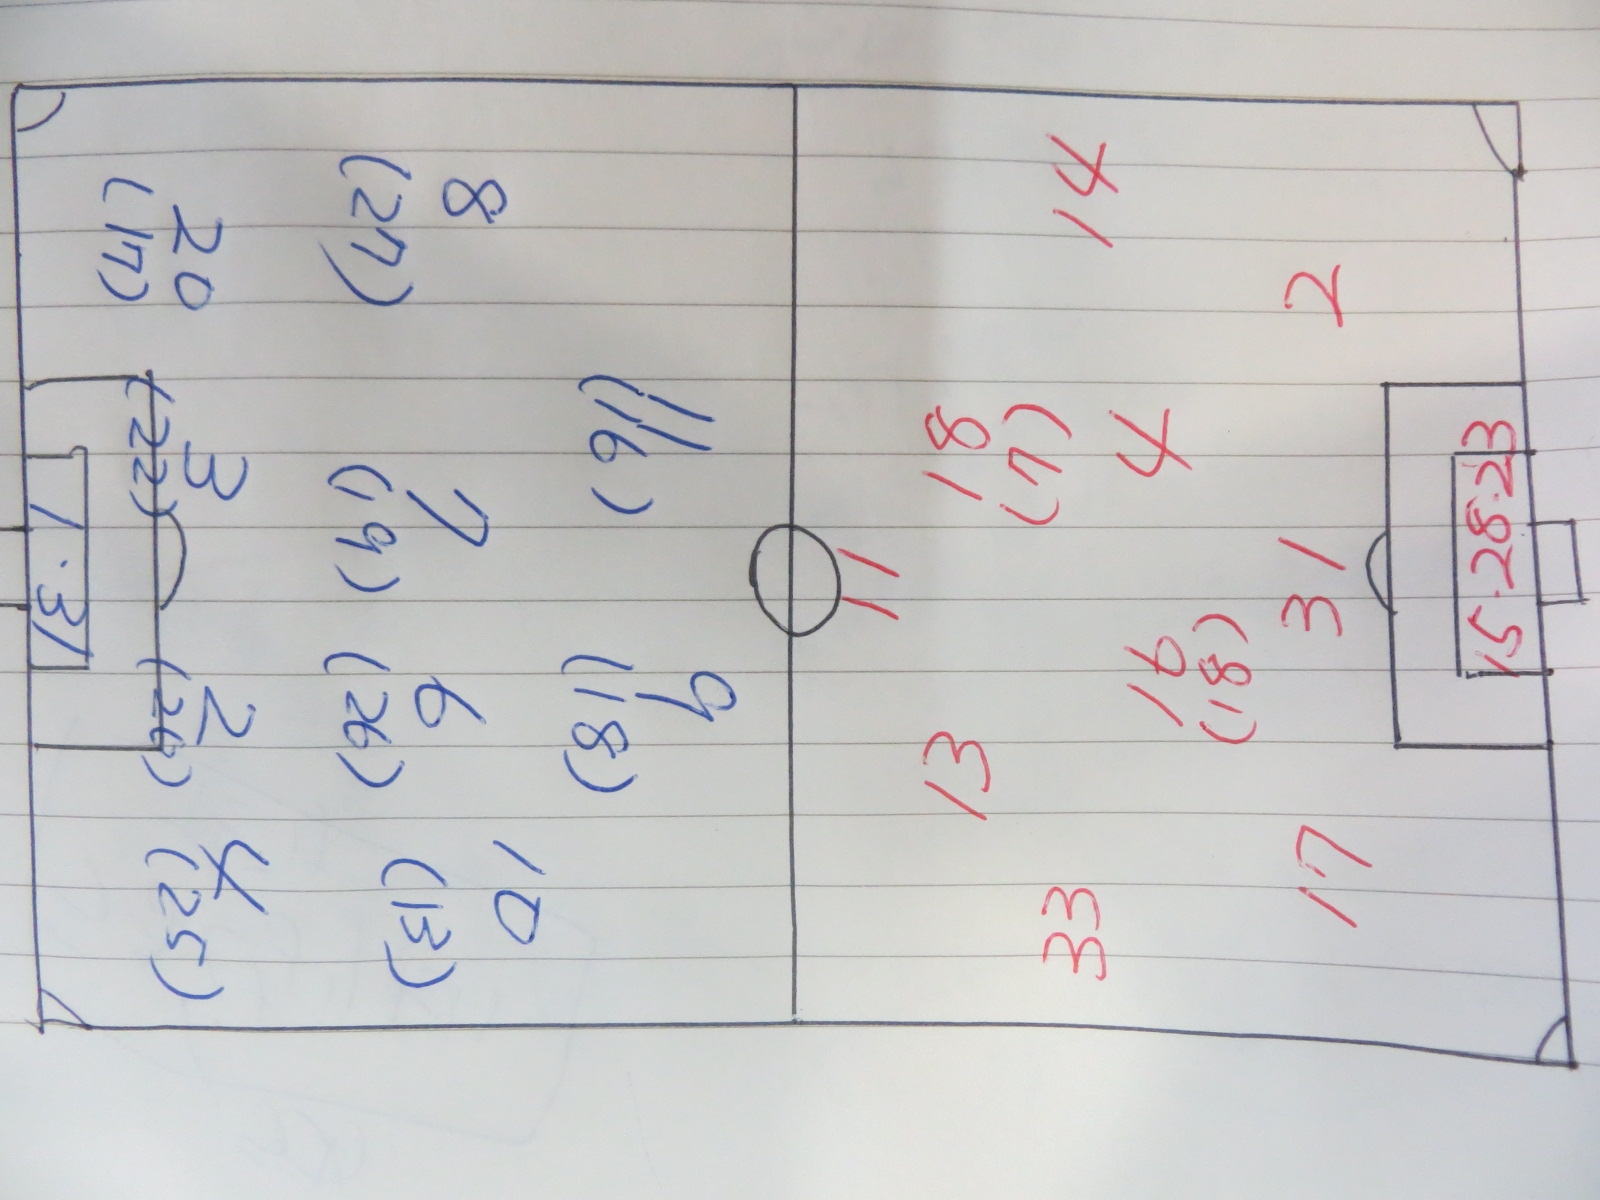 8
(27)
20
(17)
11
(16)
3
(22)
7
(19)
1・31
9
(18)
6
(26)
2
(26)
10
(13)
4
(25)
14
2
18
(7)
4
15・28・23
11
31
16
(18)
13
17
33